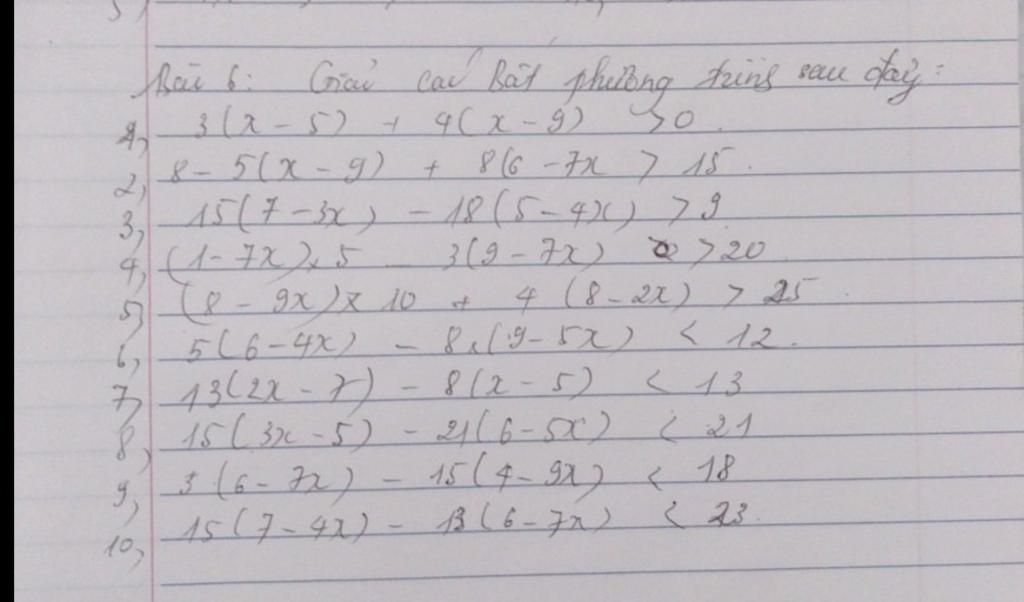 Bài 6: Giải các Bất phương trình sau đây:
1, 3(x - 5) + 4(x - 9) > 0.
2, 8 - 5(x - 9) + 8(6 - 7x > 15.
3, 15(7 - 3x) - 18(5 - 4x) > 9
4, (1 - 7x) x 5 - 3(9 - 7x) > 20
5, (8 - 9x) x 10 + 4 (8 - 2x) > 25.
6, 5(6 - 4x) - 8 x (9 - 5x) < 12.
7, 13(2x - 7) - 8(x - 5) < 13
8, 15(3x - 5) - 21(6 - 5x) < 21
9, 3(6 - 7x) - 15(4 - 9x) < 18
10, 15(7 - 4x) - 13(6 - 7x) < 23.